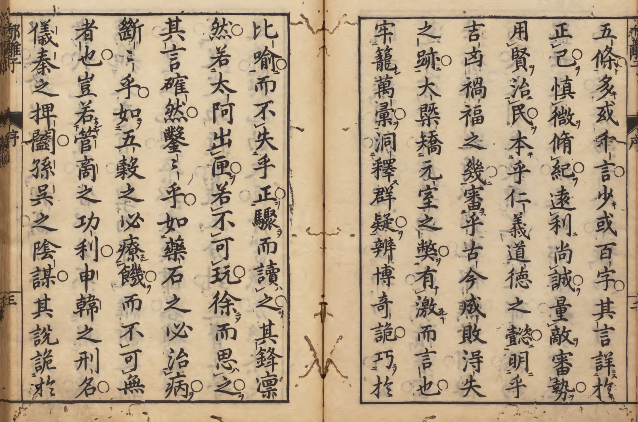 五條多或千言少或百字其言詳於
正己慎微脩紀遠利尚誠量敵審勢
用賢治民本乎仁義道德之懿明乎
古凶禍福之幾審乎古今成敗得失
之跡大槩矯元室之獘有激而言也
牢籠萬彙洞釋群疑辨博奇詭巧於
比喻而不失乎正驟而讀之其鋒凛
然若太阿出匣若不可玩徐而思之
其言確然鑿〻乎如藥石之必治病
斷〻乎如五穀之必療饑而不可無
者也豈若管商之功利申韓之刑名
儀秦之捭闔孫吳之陰謀其說詭於
郁離子
序
三